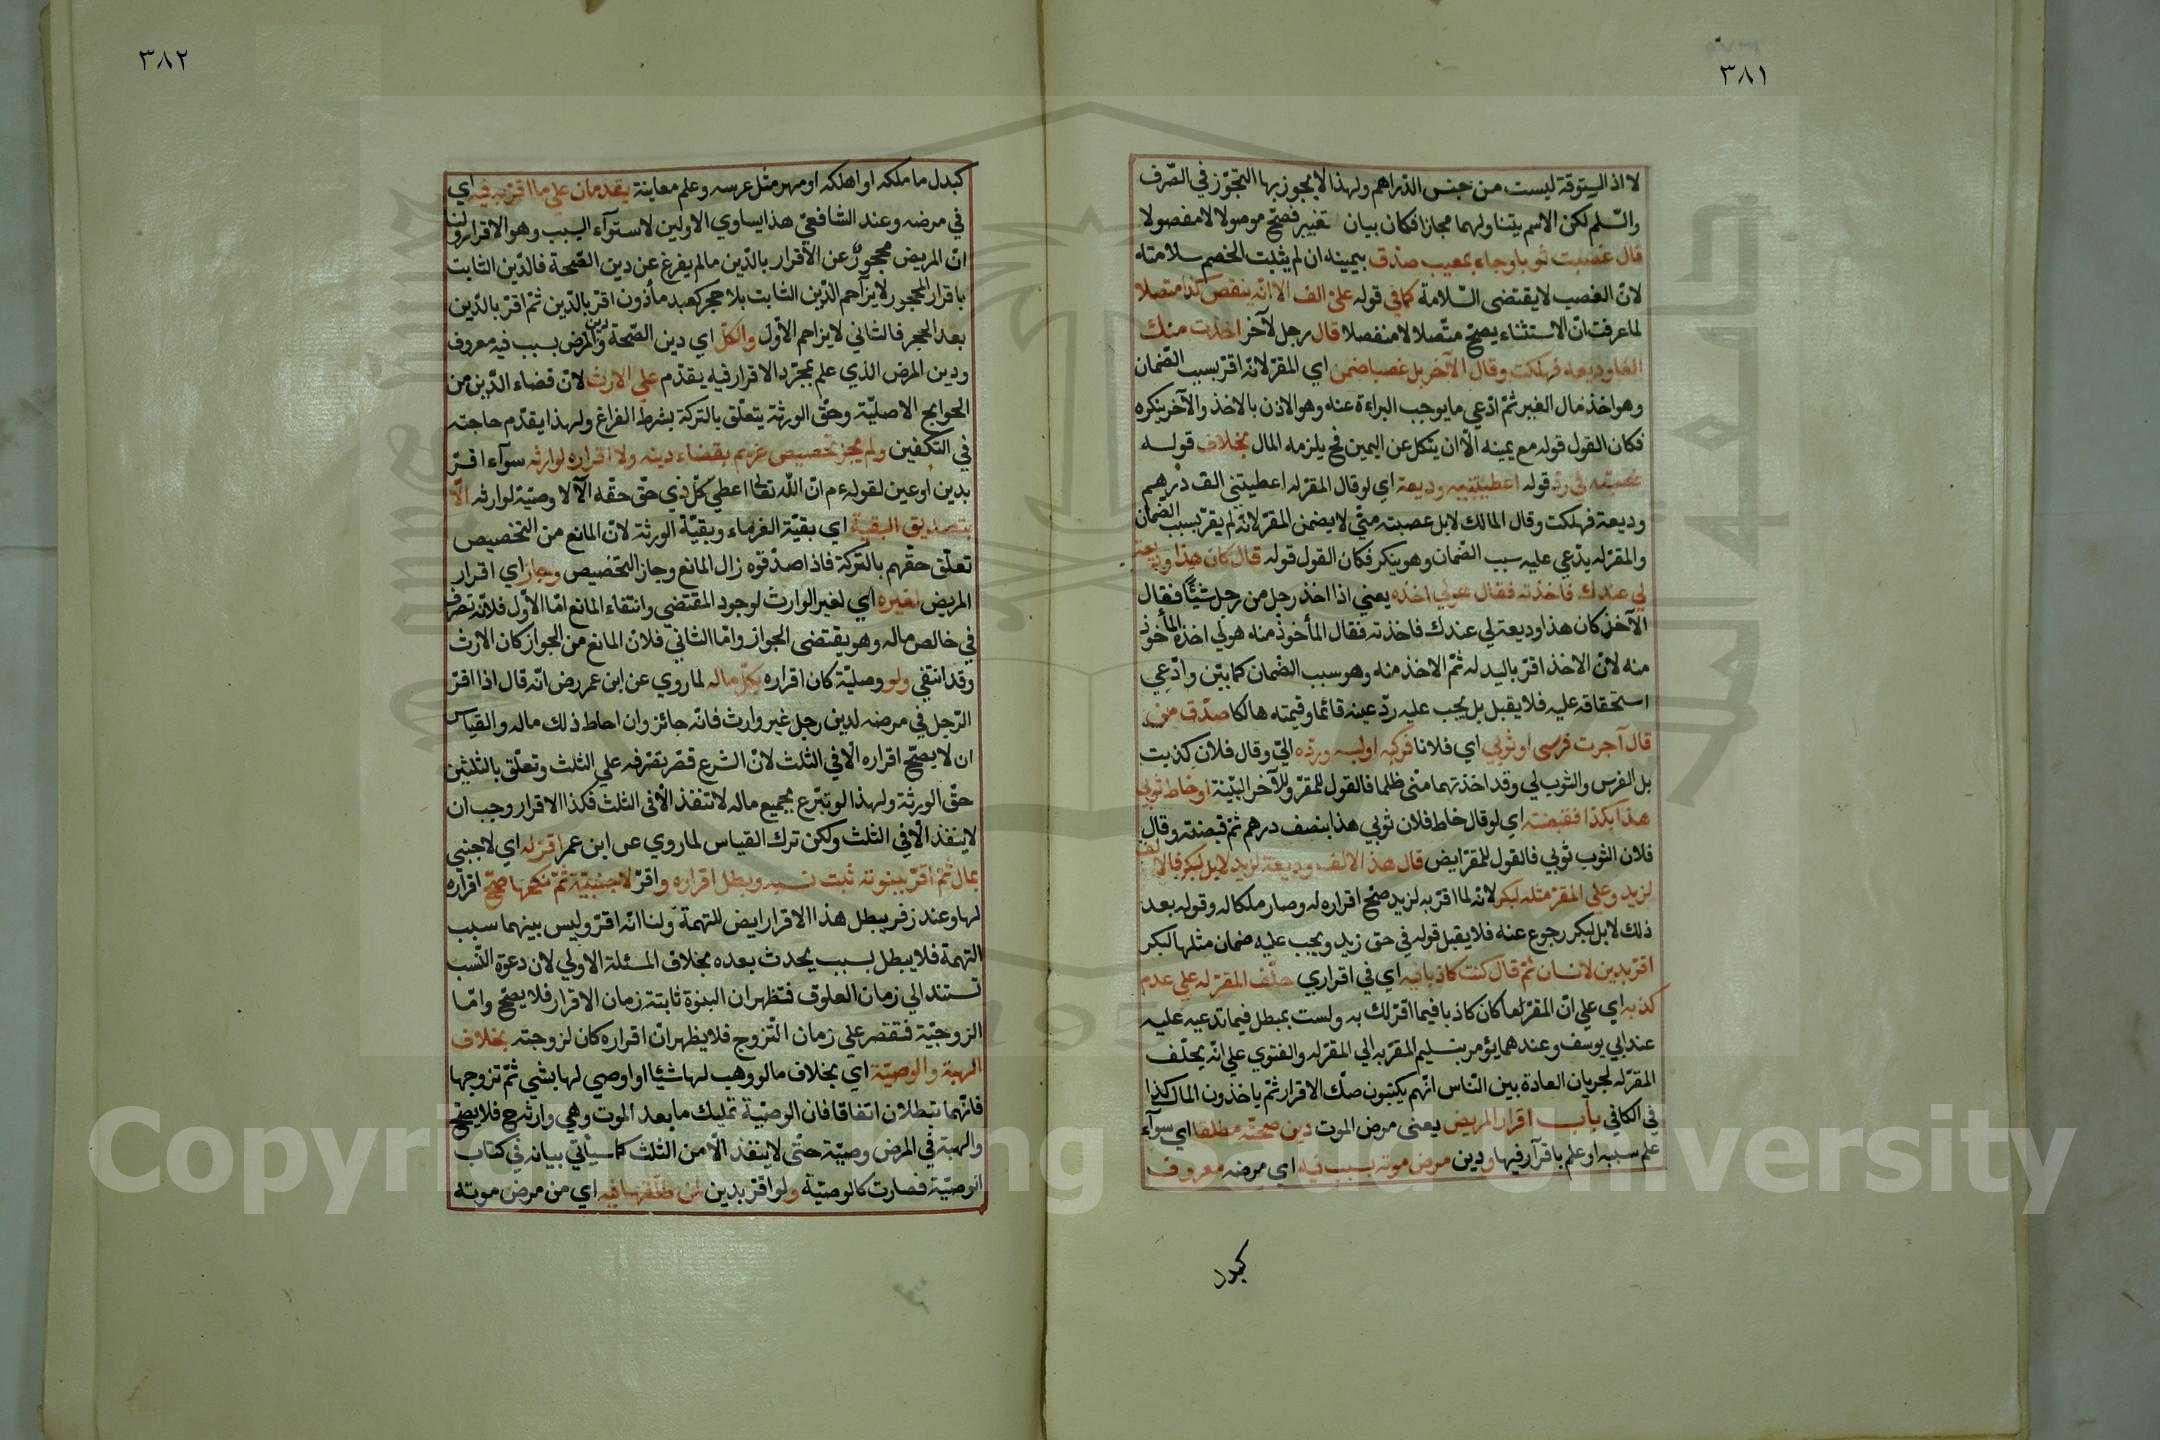 ٣٨١
لا اذ الستوقة ليست من جنس الدّراهم ولهذا لا يجوز بها التجوّز في الصّرف
والسّلم لكن الاسم يتناولهما مجازا فكان بيان تغيير فصحّ موصولا لا مفصولا
قال غصبت ثوبا وجاء بمعيب صدّق بيمينه ان لم يثبت الخصم سلامته
لانّ الغصب لا يقتضى السّلامة كما في قوله عليّ الف الا انّه ينقص كذا متصلا
لما عرفت انّ الاستثناء يصحّ متّصلا لا منفصلا قال رجل لآخر اخذت منك
الفا وديعة فهلكت وقال الآخر بل غصبا ضمن اي المقرّ لانّه اقرّ بسبب الضّمان
وهو اخذ مال الغير ثمّ ادّعي ما يوجب البراءة عنه وهو الاذن بالاخذ والآخر ينكره
فكان القول قوله مع يمينه الّا ان ينكل عن اليمين فح يلزمه المال بخلاف قوله
غصبته في ردّ قوله اعطيتنيه وديعة اي لو قال المقرّ له اعطيتني الف درهم
وديعة فهلكت وقال المالك لا بل غصبته منّي لا يضمن المقرّ لانّه لم يقرّ بسبب الضمان
والمقرّ له يدّعي عليه سبب الضّمان وهو ينكر فكان القول قوله قال كان هذا وديعة
لي عندك فاخذته فقال هو لي اخذه يعني اذا اخذ رجل من رجل شيئًا فقال
الآخذ كان هذا وديعة لي عندك فاخذته فقال المأخوذ منه هو لي اخذه المأخوذ
منه لانّ الاخذ اقرّ باليد له ثمّ الاخذ منه وهو سبب الضمان كما بيّن وادّعي
استحقاقه عليه فلا يقبل بل يجب عليه ردّ عينه قائما وقيمته هالكا صدّق من
قال آجرت فرسى او ثوبي اي فلانا فركبه او لبسه وردّه اليّ وقال فلان كذبت
بل الفرس والثوب لي وقد اخذتهما منّي ظلما فالقول للمقرّ وللآخر البيّنة او خاط ثوبي
هذا بكذا فقبضته اي لو قال خاط فلان ثوبي هذا بنصف درهم ثمّ قبضته وقال
فلان الثوب ثوبي فالقول للمقرّ ايض قال هذ الالف وديعة لزيد لا بل لبكر فالالف
لزيد وعلي المقرّ مثله لبكر لانّه لما اقرّ به لزيد صحّ اقراره له وصار ملكا له وقوله بعد
ذلك لا بل لبكر رجوع عنه فلا يقبل قوله في حق زيد ويجب عليه ضمان مثلها لبكر
اقرّ بدين لانسان ثمّ قال كنت كاذبا فيه اي في اقراري حلّف المقرّ له علي عدم
كذبه اي علي انّ المقرّ لها كان كاذبا فيما اقرّ لك به ولست بمبطل فيما تدعيه عليه
عند ابي يوسف وعندهما يؤمر بتسليم المقرّ به الي المقرّ له والفتوي علي انّه يحلّف
المقرّ له لجريان العادة بين النّاس انّهم يكتبون صكّ الاقرار ثمّ ياخذون المال كذا
في الكافي باب اقرار المريض يعنى مرض الموت دين صحّته مطلقا اي سوآء
علم سببه او علم باقراره فيها ودين مرض موته بسبب فيه اي مرضه معروف
كبدل
٣٨٢
كبدل ما ملكه او اهلكه او مهر مثل عرسه وعلم معاينة يقدمان علي ما اقرّ به فيه اي
في مرضه وعند الشّافعيّ هذا يساوي الاولين لاستوآء السبب وهو الاقرار ولنا
انّ المريض محجورٌ عن الاقرار بالدّين مالم يفرغ عن دين الصّحة فالدّين الثابت
باقرار المحجور لا يزاحم الدّين الثابت بلا حجر كعبد مأذون اقرّ بالدّين ثمّ اقرّ بالدّين
بعد الحجر فالثاني لا يزاحم الاوّل والكلّ اي دين الصّحة ودين المرض بسبب فيه معروف
ودين المرض الذي علم بمجرّد الاقرار فيه يقدّم علي الارث لانّ قضاء الدّين من
الحوايج الاصليّة وحقّ الورثة يتعلّق بالتركة بشرط الفراغ ولهذا يقدّم حاجته
في التكفين ولم يجز تخصيص غريم بقضاء دينه ولا اقراره لوارثه سوآء اقرّ
بدين او عين لقوله ءم انّ اللّه تعالى اعطي كلّ ذي حقّ حقّه الا لا وصيّة لوارثه الّا
بتصديق البقيّة اي بقيّة الغرماء وبقيّة الورثة لانّ المانع من التخصيص
تعلّق حقّهم بالتركة فاذا صدّقوه زال المانع وجاز التخصيص وجاز اي اقرار
المريض لغيره اي لغير الوارث لوجود المقتضي وانتفاء المانع امّا الاوّل فلانّه تصرف
في خالص ماله وهو يقتضى الجواز وامّا الثاني فلانّ المانع من الجواز كان الارث
وقد انتفي ولو وصليّة كان اقراره بكلّ ماله لما روي عن ابن عمر رض انّه قال اذا اقرّ
الرّجل في مرضه لدين رجل غير وارث فانّه جائز وان احاط ذلك ماله والقياس
ان لا يصحّ اقراره الّا في الثلث لانّ الشرع قصّر تصّرفه علي الثلث وتعلّق بالثلثين
حقّ الورثة ولهذا لو تبرّع بجميع ماله لا تنفذ الّا في الثلث فكذا الاقرار وجب ان
لا ينفذ الّا في الثلث ولكن ترك القياس لما روي عن ابن عمر اقرّ له اي لاجنبي
بمال ثمّ اقرّ ببنوته ثبت نسبه وبطل اقراره واقرّ لاجنبيّة ثمّ نكحها صحّ اقراره
لها وعند زفر يبطل هذا الاقرار ايض للتهمة ولنا انّه اقرّ وليس بينهما سبب
التهمة فلا يبطل بسبب يحدث بعده بخلاف المسئلة الاولي لان دعوة النّسب
تستند الي زمان العلوق فتظهر ان البنوّة ثابتة زمان الاقرار فلا يصحّ وامّا
الزوجيّة فتقتصر علي زمان التزوج فلا يظهر انّ اقراره كان لزوجته بخلاف
الهبة والوصيّة اي بخلاف ما لو وهب لها شيئا او اوصي لها بشي ثمّ تزوجها
فانّهما تبطلان اتفاقا فان الوصيّة تمليك ما بعد الموت وهي وارثة ح فلا يصحّ
والهبة في المرض وصيّة حتّى لا ينفذ الّا من الثلث كما سيأتي بيانه في كتاب
الوصيّة فصارت كالوصيّة ولو اقرّ بدين لمن طلّقها فيه اي من مرض موته
Copyright © King Saud University